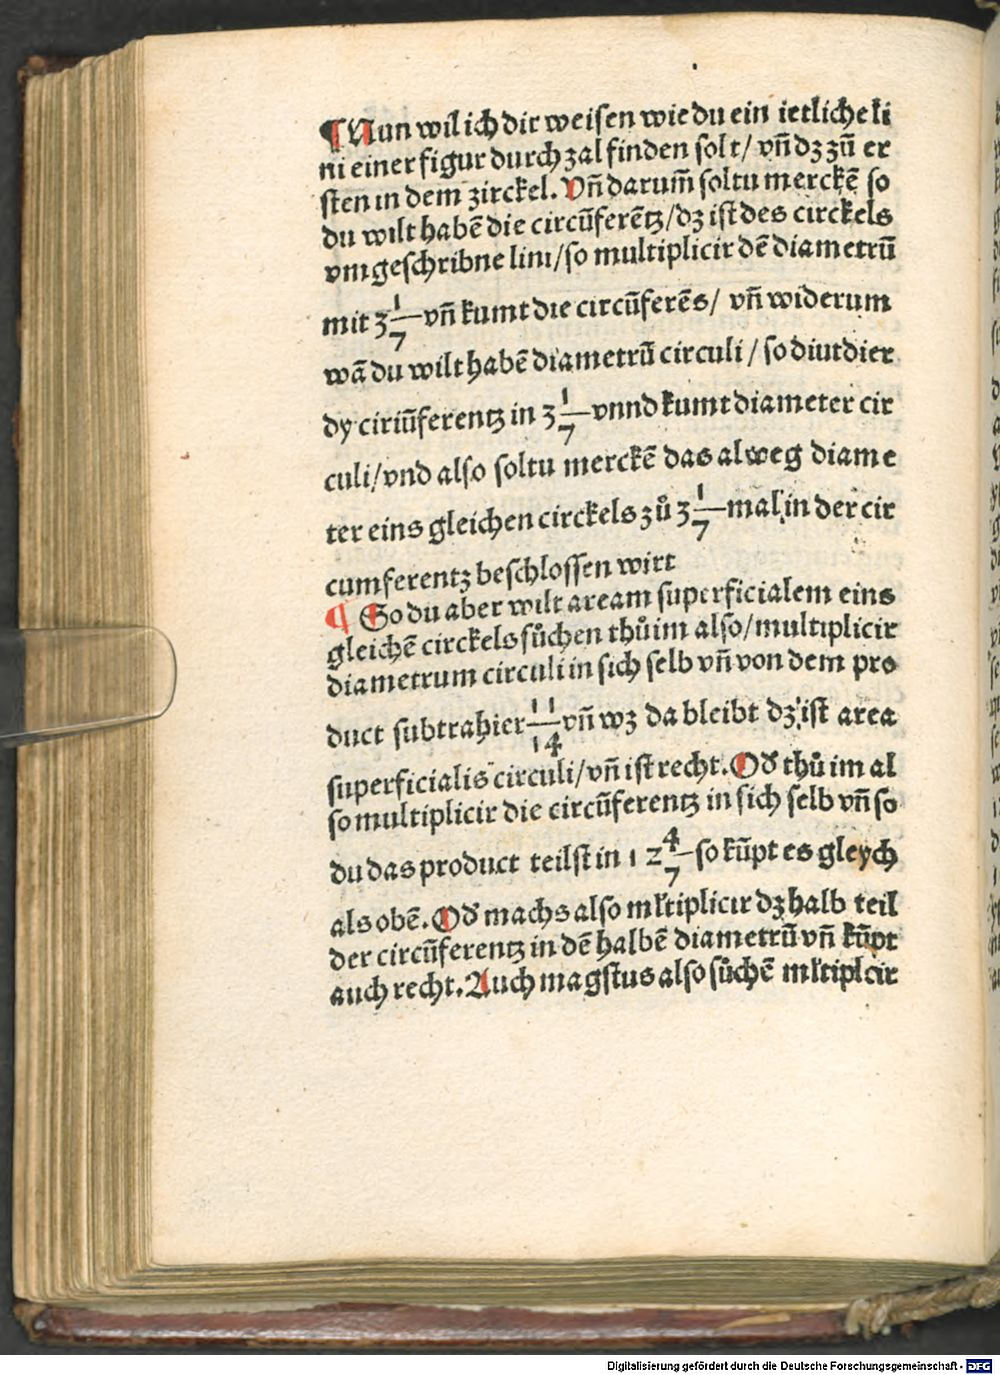 ¶Nun wil ich dir weisen wie du ein ietliche li
ni einer figur durch zal finden solt/ vñ dz zũ er
sten in dem zirckel. Vñ darum̃ soltu merckẽ so
du wilt habẽ die circũferẽtz/dz ist des circkels
vmgeschribne lini/so multiplicir dẽ diametrũ
mit 3 1/7 vñ kumt die circũferẽs/ vñ widerum
wã du wilt habẽ diametrũ circuli / so diuidier
dy ciriũferentz in 3 1/7 vnnd kumt diameter cir
culi/vnd also soltu merckẽ das alweg diame
ter eins gleichen circkels zů 3 1/7 mal in der cir
cumferentz beschlossen wirt
¶ So du aber wilt aream superficialem eins
gleichẽ circkels sůchen thů im also/multiplicir
diametrum circuli in sich selb vñ von dem pro
duct subtrahier 11/14 vñ wz da bleibt dz ist area
superficialis circuli/vñ ist recht. Od' thů im al
so multiplicir die circũferentz in sich selb vñ so
du das product teilst in 12 4/7 so kũpt es gleych
als obẽ. Od' machs also ml'tiplicir dz halb teil
der circũferentz in dẽ halbẽ diametrũ vñ kũpt
auch recht. Auch magstus also sůchẽ ml'tiplcir
Digitalisierung gefördert durch die Deutsche Forschungsgemeinschaft - DFG